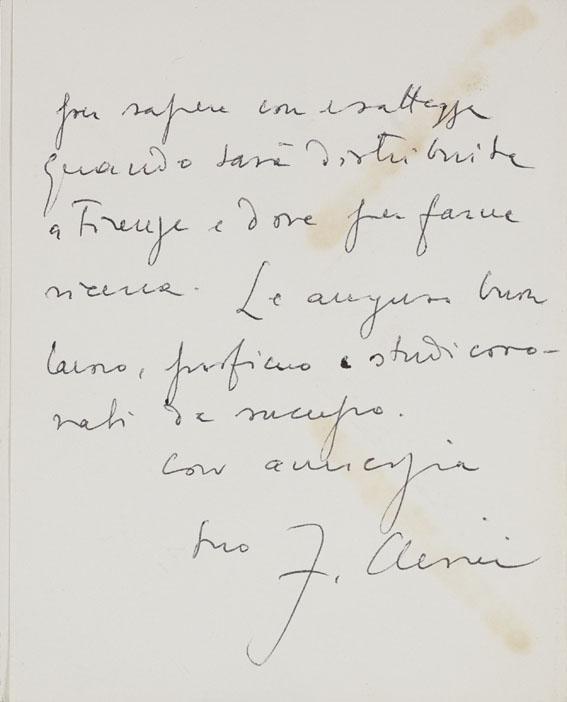 per sapere con esattezza
quando sarà distribuita
a Firenze e dove per farne
ricerca. Le auguro buon
lavoro, proficuo e studi coro-
nati da successo.
con amicizia
suo F. Clerici